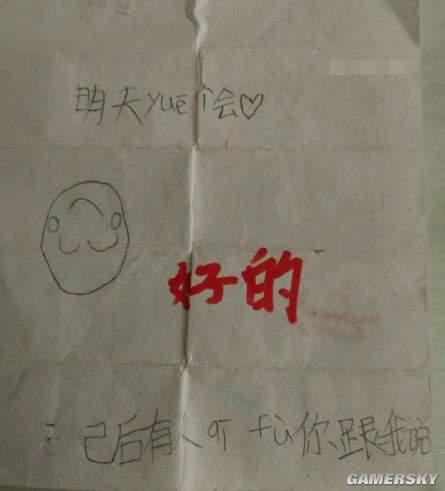 明天yuē个会♡
好的
己后有人qī fù你、跟我说
GAMERSKY